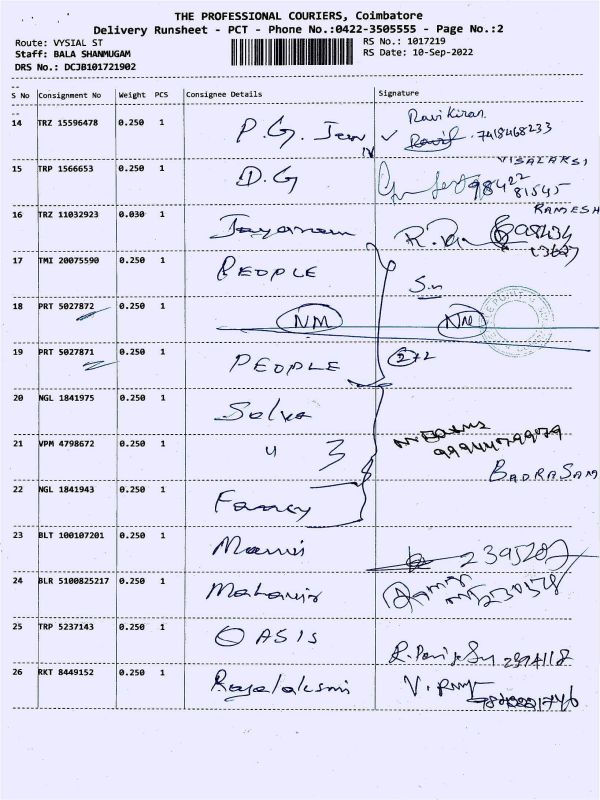 THE PROFESSIONAL COURIERS, Coimbatore
Delivery Runsheet - PCT - Phone No.:0422-3505555 - Page No.:2
Route: VYSIAL ST
RS No.: 1017219
Staff: BALA SHANMUGAM
RS Date: 10-Sep-2022
DRS No.: DCJB101721902
S No Consignment No Weight PCS Consignee Details Signature
Ravi Kiran
14 TRZ 15596478 0.250 1 P.G. 7418468233
VISALAKSI
15 TRP 1566653 0.250 1 D.G 98422
81545
RAMESH
16 TRZ 11032923 0.030 1 Jayaram
17 TMI 20075590 0.250 1 PEOPLE
18 PRT 5027872 0.250 1 NM NM
19 PRT 5027871 0.250 1 PEOPLE 2+2
20 NGL 1841975 0.250 1 Selva
21 VPM 4798672 0.250 1 " 3
BADRASAM
22 NGL 1841943 0.250 1 Fancy
23 BLT 100107201 0.250 1
24 BLR 5100825217 0.250 1 Mahavir
25 TRP 5237143 0.250 1 OASIS
26 RKT 8449152 0.250 1 Rajalaksmi